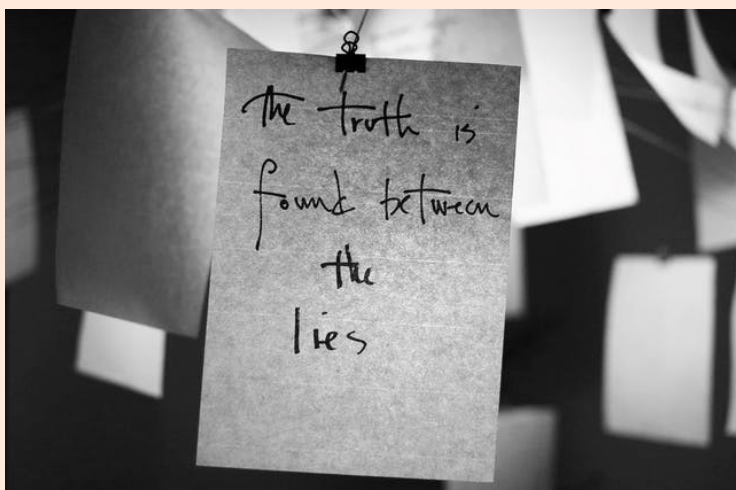 The truth is
found between
the
lies